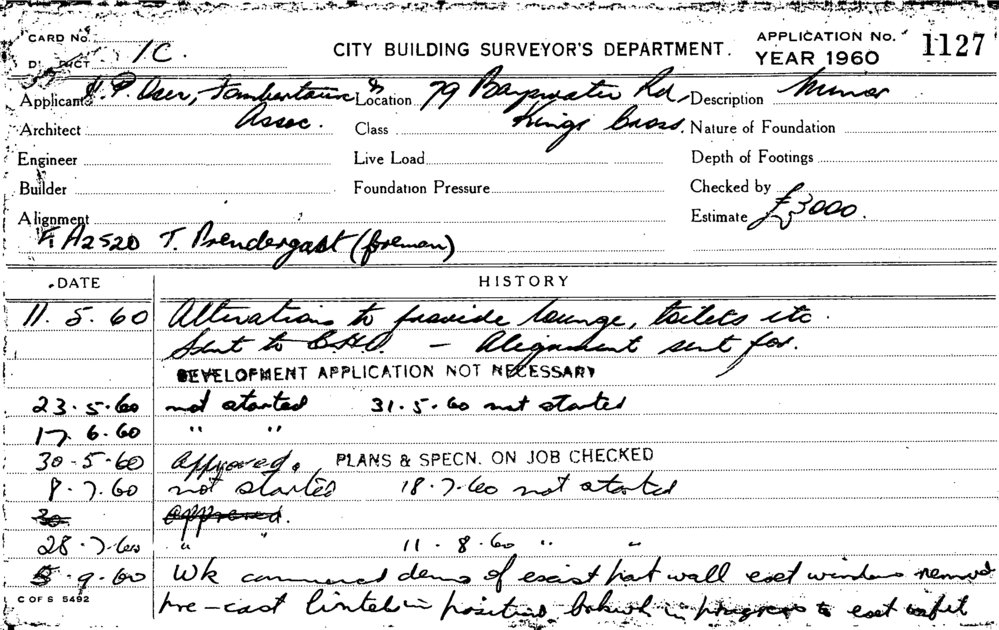 CARD No.
DISTRICT 1C.
CITY BUILDING SURVEYOR'S DEPARTMENT.
APPLICATION No. 1127
YEAR 1960
Applicant H. P. Oser, & Assoc.
Location 79 Bayswater Rd, Kings Cross.
Description Minor
Architect
Class
Nature of Foundation
Engineer
Live Load
Depth of Footings
Builder
Foundation Pressure
Checked by
Alignment
Estimate £3000.
FA2520 T. Prendergast (foreman)
DATE HISTORY
11. 5. 60 Alterations to provide lounge, toilets etc.
Sent to C.H.O. – Alignment sent for.
DEVELOPMENT APPLICATION NOT NECESSARY
23. 5. 60 not started 31. 5. 60 not started
17. 6. 60 " "
30. 5. 60 Approved. PLANS & SPECN. ON JOB CHECKED
8. 7. 60 not started 18. 7. 60 not started
30 approved.
28. 7. 60 " " 11. 8. 60 " "
5. 9. 60 Wk commenced demo of exist part wall window removed
C OF S 5492
pre-cast lintel in position in progress to